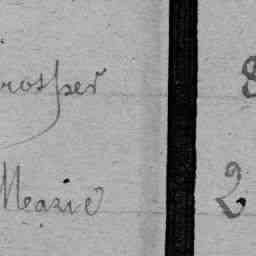 rosper 8
Marie 2